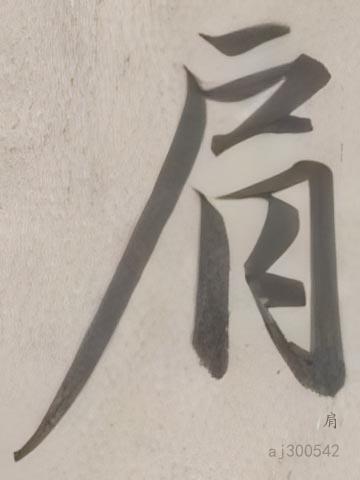 肩
肩
aj300542